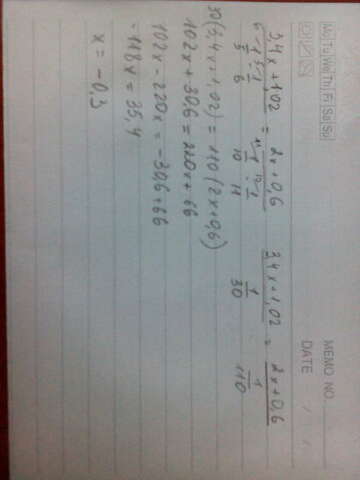 Mo Tu We Th Fr Sa Su MEMO NO.
DATE / /
3,4x+1,02 = 2x+0,6 3,4x+1,02 = 2x+0,6
1/5 - 1/6 1/10 - 1/11 1/30 1/110
30(3,4x+1,02) = 110(2x+0,6)
102x + 30,6 = 220x + 66
102x - 220x = -30,6+66
-118x = 35,4
x = -0,3